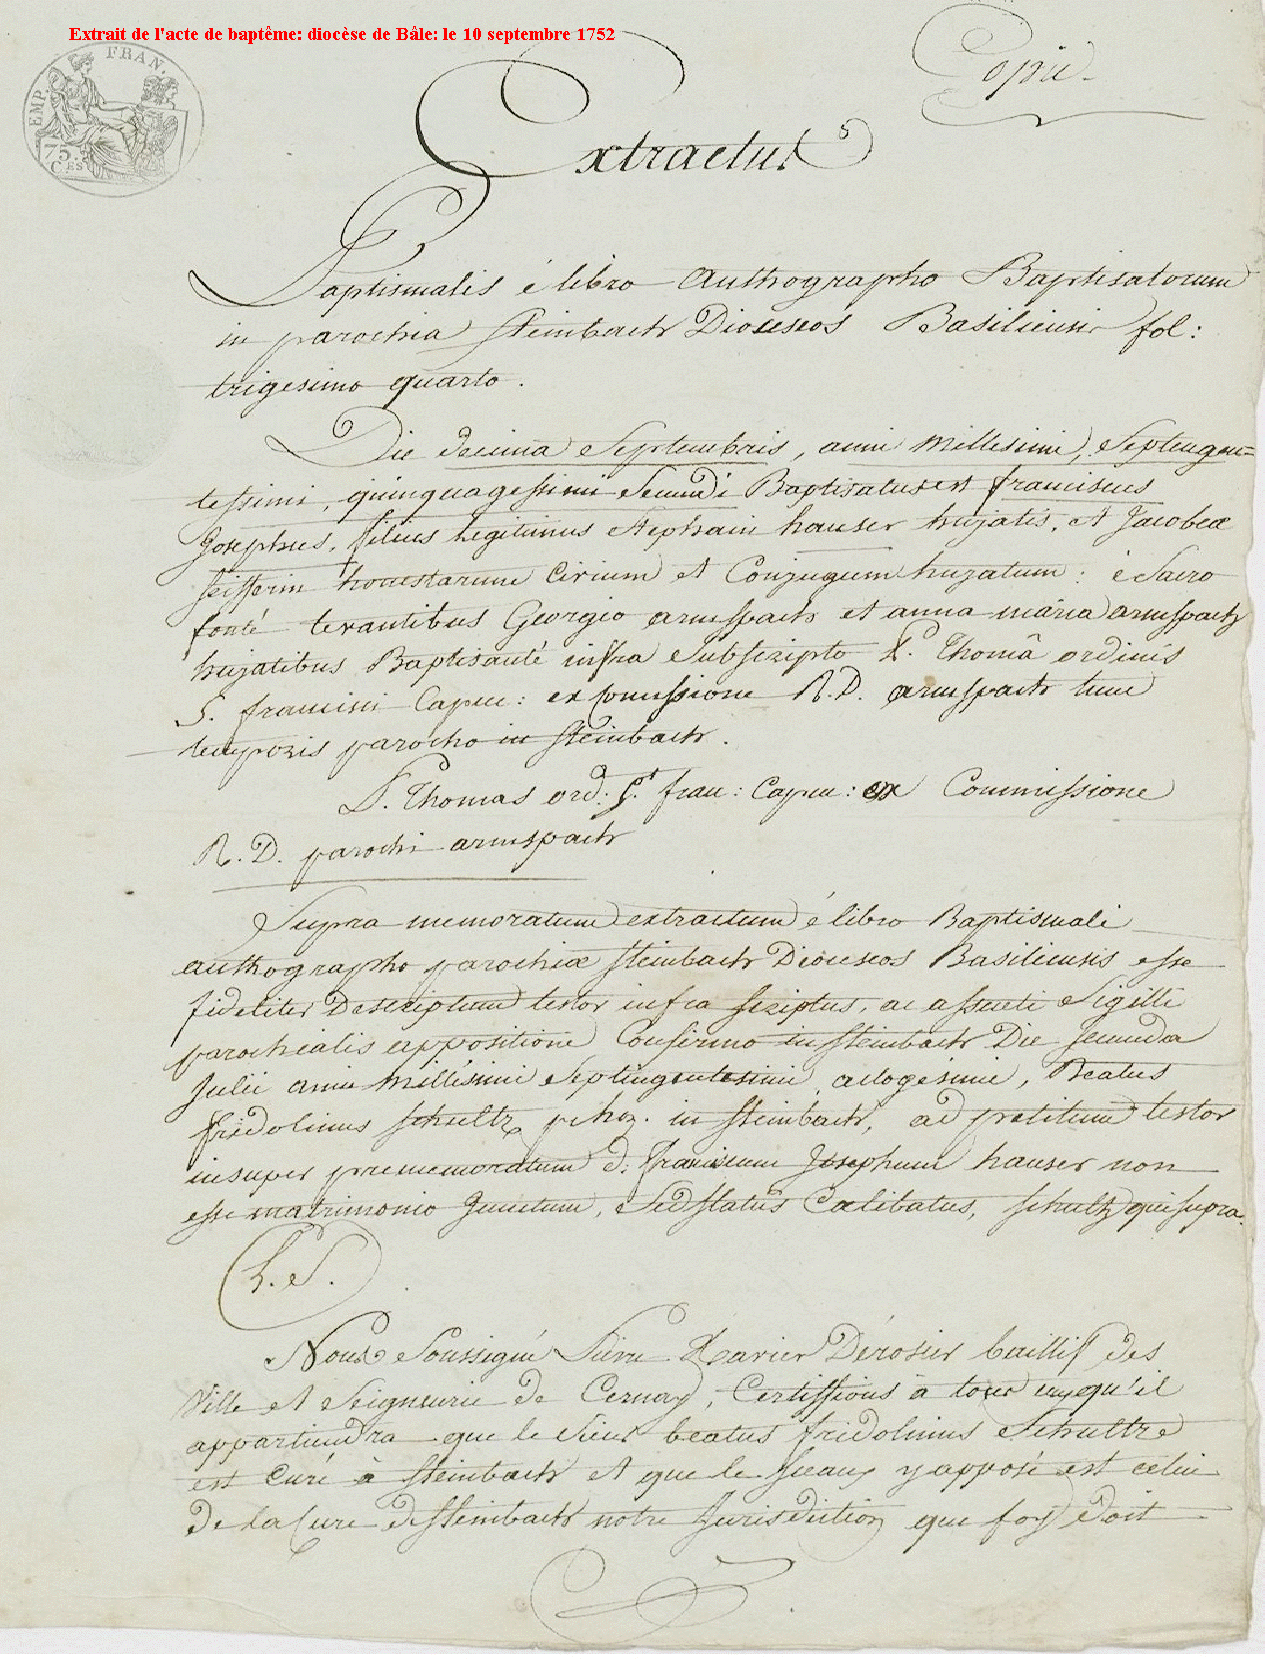 Extrait de l'acte de baptême: diocèse de Bâle: le 10 septembre 1752
EMP. FRAN.
75.
CES
Copie
Extractus
Baptismalis é libro Authographo Baptisatorum
in parochia Steinbach Dioceseos Basiliensis fol:
trigesimo quarto.
Die decima Septembris, anni Millesimi, Septengen=
tessimi, quinquagessimi Secundi Baptisatus est franciscus
Josephus, filius legitimus Stephani hauser hujatis, et Jacobeæ
honestarum Civium et Conjugum hujatum: è Sacro
fonté levantibus Georgio arnspach et anna maria arnspach
hujatibus Baptisanté infra Subscripto P. Thomâ ordinis
S. francisci Capuc: ex Comissione R.D. arnspach tunc
temporis parocho in Steinbach.
P. Thomas ord: S.ti fran: Capuc: ex Commissione
R.D. parochi arnspach
Supra memoratum extractum é libro Baptismali
authographo parochiæ Steinbach Dioceseos Basiliensis esse
fideliter Descriptum testor infra scriptus, ac assueti Sigilli
parochialis appositione Confirmo in Steinbach Die secunda
Julii anni Millesimi Septingentesimi octogesimi, Beatus
fridolinus schultz in Steinbach, ad petitum testor
insuper prememoratum d: franciscum Josephum hauser non
esse matrimonio Junctum, sed status Cælibatus, schultz qui supra.
L.S.
Nous Soussigné Xavier Dérosier baillif des
Ville et Seigneurie de Cernay, Certiffions à tous ceux qu'il
appartiendra que le Sieur beatus fridolinus Schultre
est Curé à Steinbach et que le sceaux y apposé est celui
de la Cure de Steinbach notre Jurisdiction que foy doit